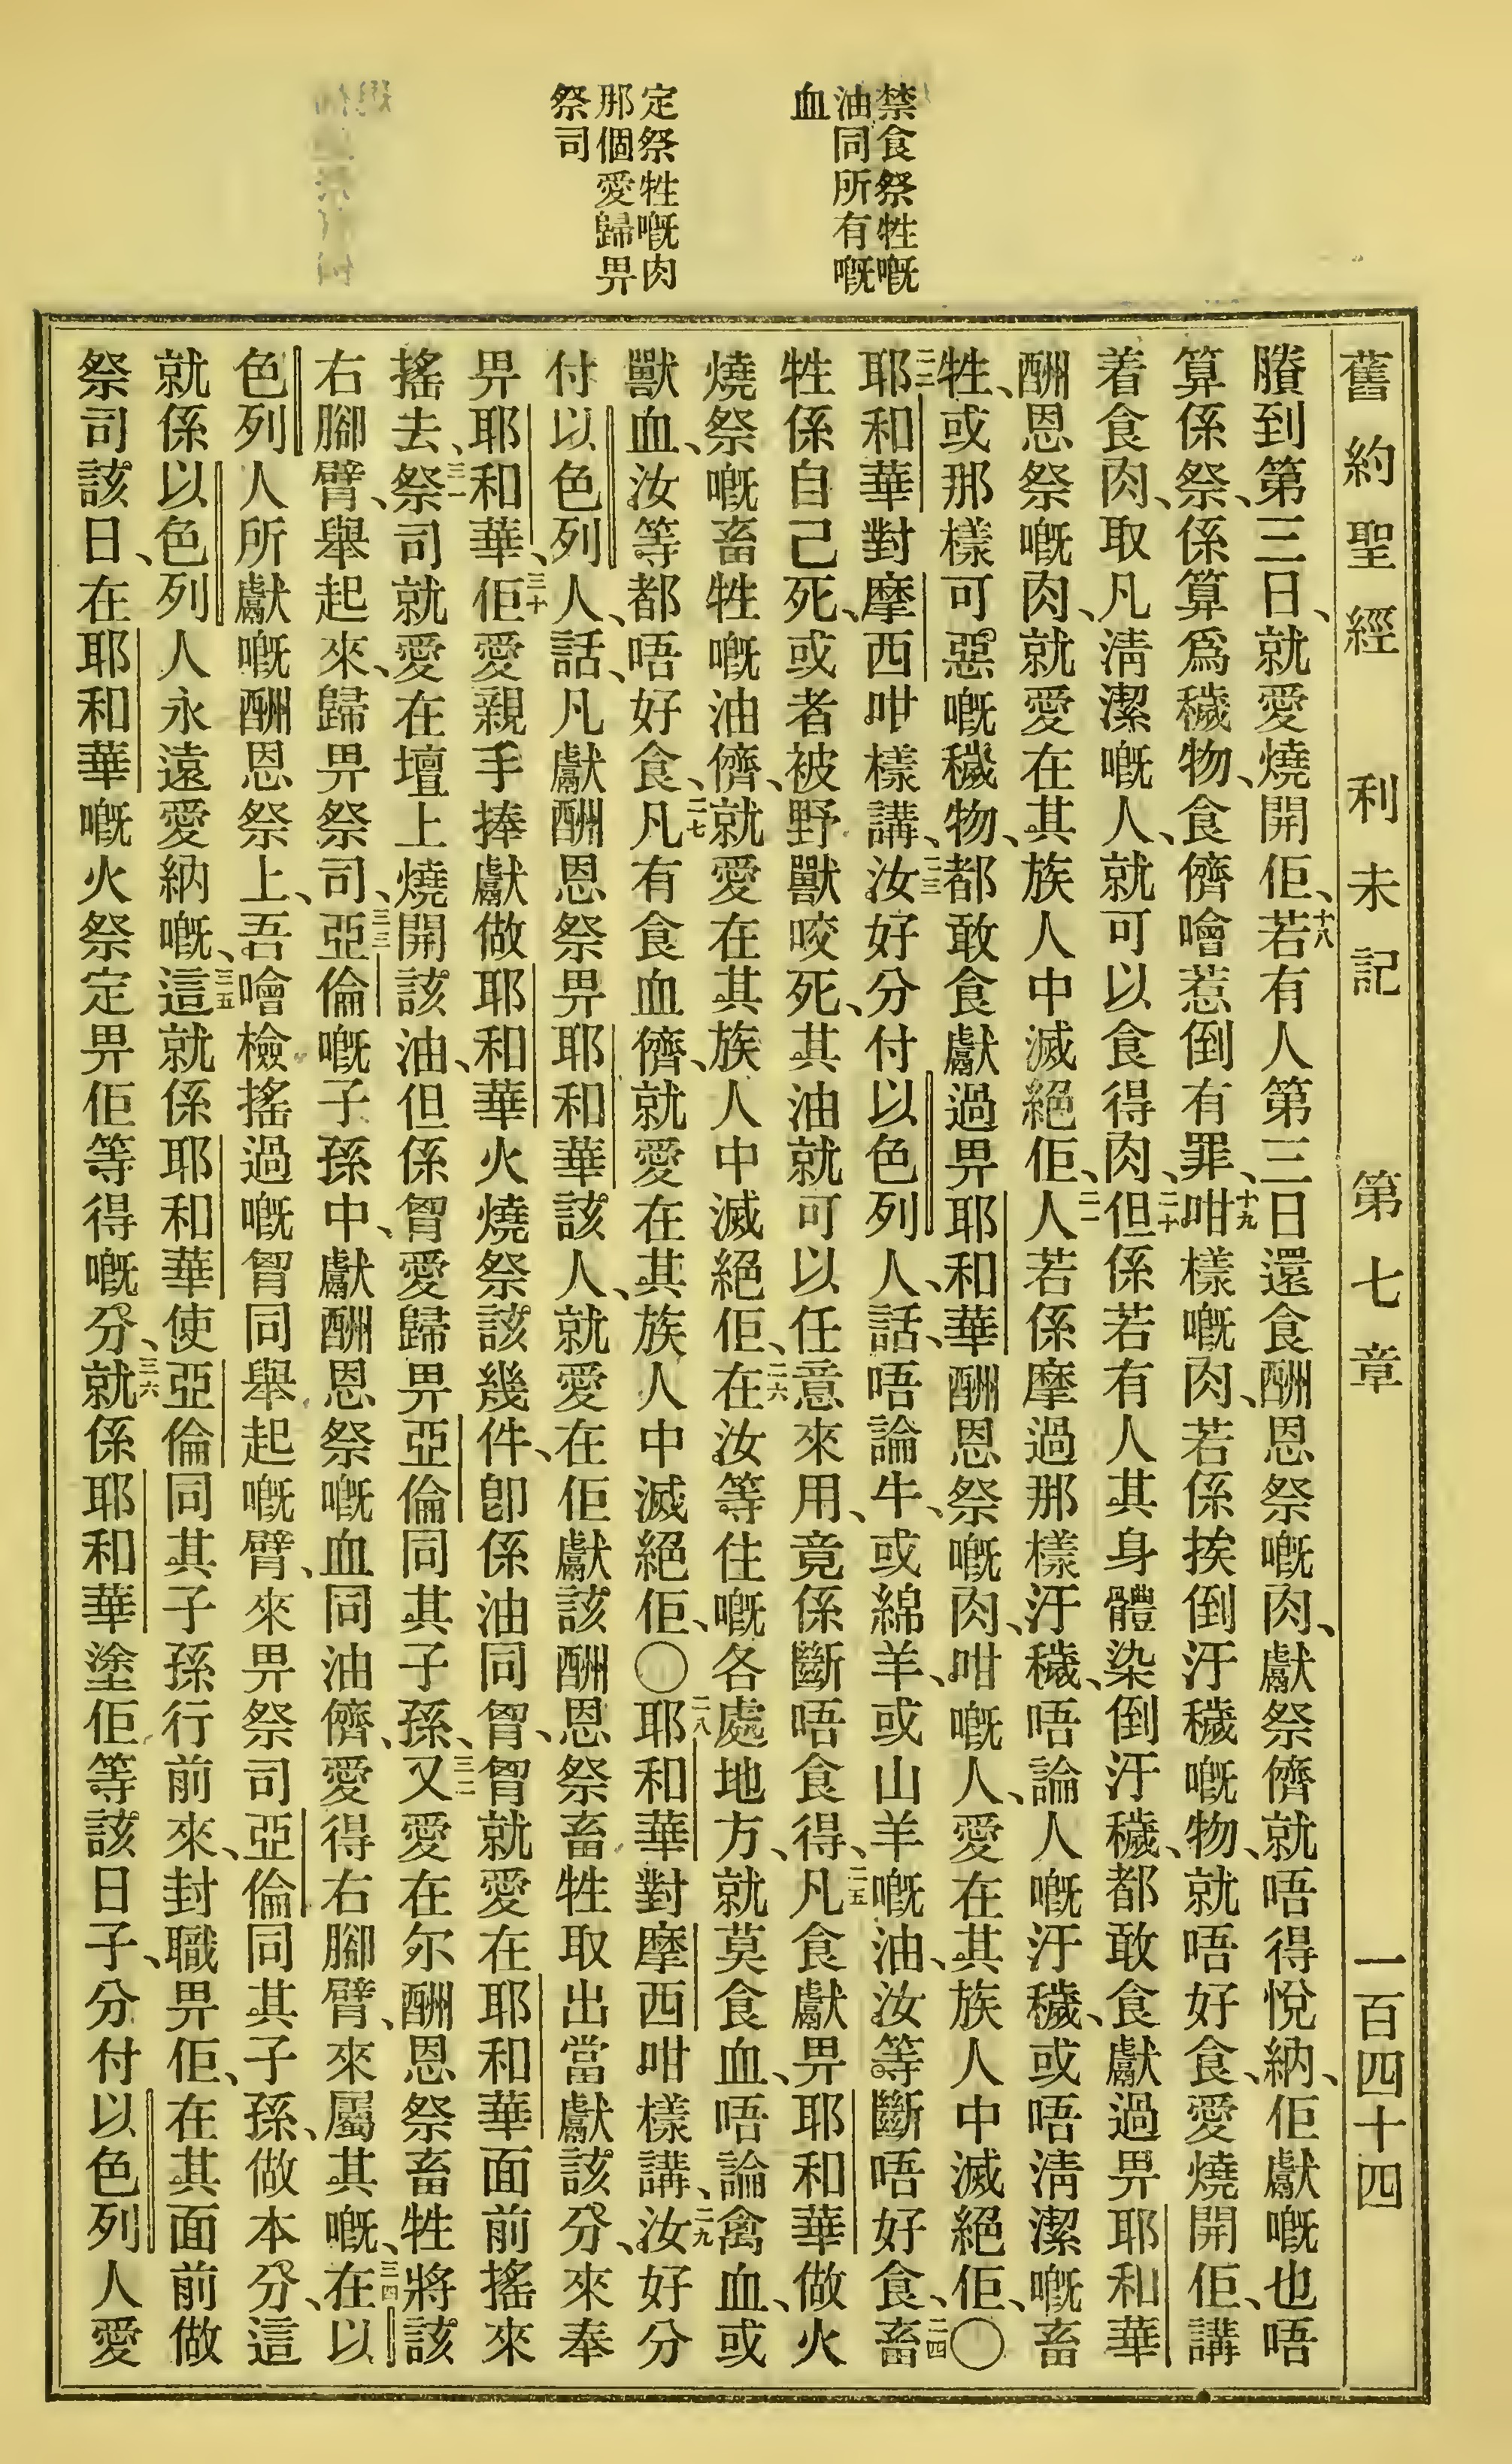 禁食祭牲嘅
油同所有嘅
血
定祭牲嘅肉
那個愛歸畀
祭司
舊約聖經 利未記 第七章 一百四十四
賸到第三日、就愛燒開佢、十八若有人第三日還食酬恩祭嘅肉、獻祭儕就唔得悅納、佢獻嘅也唔
算係祭、係算爲穢物、食儕噲惹倒有罪、十九咁樣嘅肉、若係挨倒汙穢嘅物、就唔好食、愛燒開佢、講
着食肉、取凡淸潔嘅人、就可以食得肉、二十但係若有人其身體染倒汙穢、都敢食獻過畀耶和華
酬恩祭嘅肉、就愛在其族人中滅絕佢、二一人若係摩過那樣汙穢、唔論人嘅汙穢、或唔淸潔嘅畜
牲、或那樣可惡嘅穢物、都敢食獻過畀耶和華酬恩祭嘅肉、咁嘅人、愛在其族人中滅絕佢、〇
二二耶和華對摩西咁樣講、二三汝好分付以色列人、話、唔論牛、或綿羊、或山羊嘅油、汝等斷唔好食、二四畜
牲係自己死、或者被野獸咬死、其油就可以任意來用、竟係斷唔食得、二五凡食獻畀耶和華做火
燒祭嘅畜牲嘅油儕、就愛在其族人中滅絕佢、二六在汝等住嘅各處地方、就莫食血、唔論禽血、或
獸血、汝等都唔好食、二七凡有食血儕、就愛在其族人中滅絕佢、〇二八耶和華對摩西咁樣講、二九汝好分
付以色列人、話、凡獻酬恩祭畀耶和華該人、就愛在佢獻該酬恩祭畜牲取出當獻該分、來奉
畀耶和華、三十佢愛親手捧獻做耶和華火燒祭該幾件、卽係油同胷、胷就愛在耶和華面前搖來
搖去、三一祭司就愛在壇上燒開該油、但係胷愛歸畀亞倫同其子孫、三二又愛在尔酬恩祭畜牲將該
右腳臂、舉起來、歸畀祭司、三三亞倫嘅子孫中、獻酬恩祭嘅血同油儕、愛得右腳臂、來屬其嘅、三四在以
色列人所獻嘅酬恩祭上、吾噲檢搖過嘅胷同舉起嘅臂、來畀祭司亞倫同其子孫、做本分、這
就係以色列人永遠愛納嘅、三五這就係耶和華使亞倫同其子孫行前來、封職畀佢、在其面前做
祭司該日、在耶和華嘅火祭定畀佢等得嘅分、三六就係耶和華塗佢等該日子、分付以色列人愛